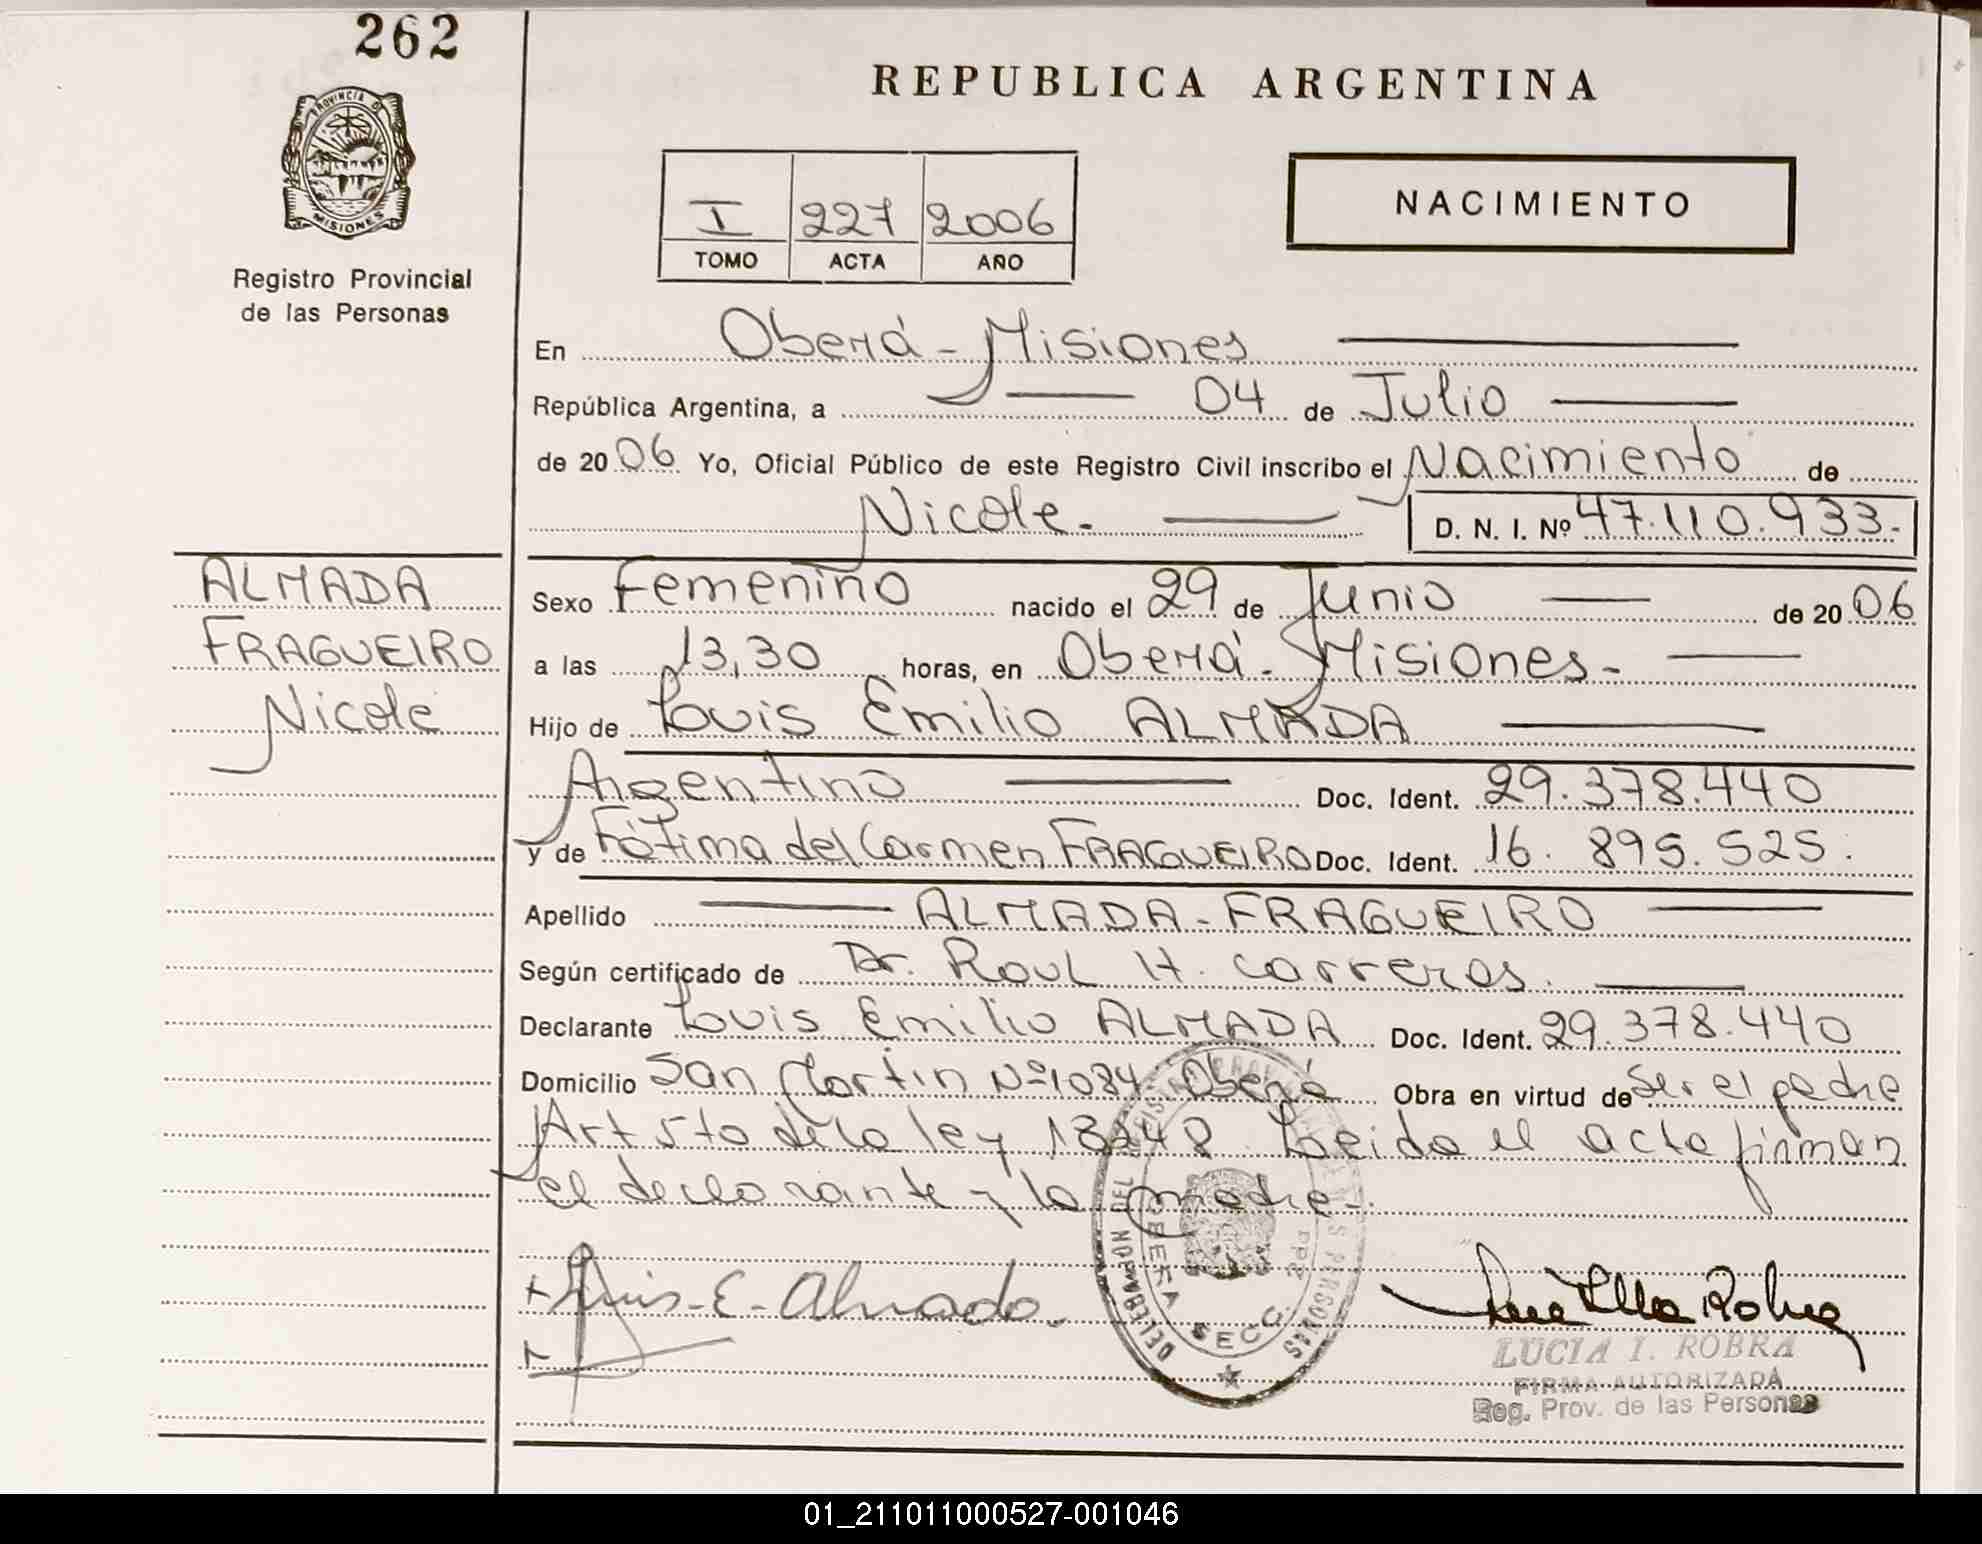 262
PROVINCIA DE
MISIONES
Registro Provincial
de las Personas
REPUBLICA ARGENTINA
I 227 2006
TOMO ACTA AÑO
NACIMIENTO
En Oberá - Misiones
República Argentina, a 04 de Julio
de 2006 Yo, Oficial Público de este Registro Civil inscribo el Nacimiento de
Nicole.- D. N. I. Nº 47.110.933.-
ALMADA
FRAGUEIRO
Nicole
Sexo Femenino nacido el 29 de Junio de 2006
a las 13,30 horas, en Oberá - Misiones.-
Hijo de Luis Emilio ALMADA
Argentino Doc. Ident. 29.378.440
y de Fátima del Carmen FRAGUEIRO Doc. Ident. 16.895.525.
Apellido ALMADA - FRAGUEIRO
Según certificado de Dr. Raul H. Carreras.
Declarante Luis Emilio ALMADA Doc. Ident. 29.378.440
Domicilio San Martin Nº 1084 Oberá Obra en virtud de Ser el padre
Art 5to de la ley 18248. Leida el acta firman
el declarante y la madre.-
Luis - E - Almada.
SECC.
LUCIA I. ROBRA
FIRMA AUTORIZADA
Reg. Prov. de las Personas
01_211011000527-001046